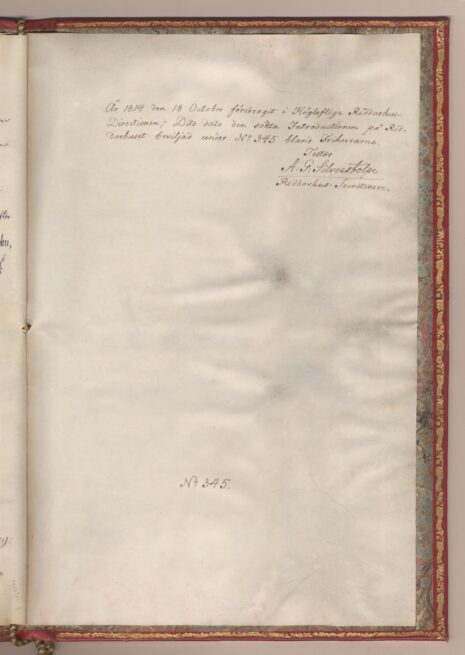 År 1814 den 18 October föredragit i Högloflige Riddarhus-
Directionen; Dito dato den sökta Introductionen på Rid-
darhuset beviljad under No 345 bland Friherrarne.
Testor
A. G. Silverstolpe
Riddarhus-Secreterare.
No 345.